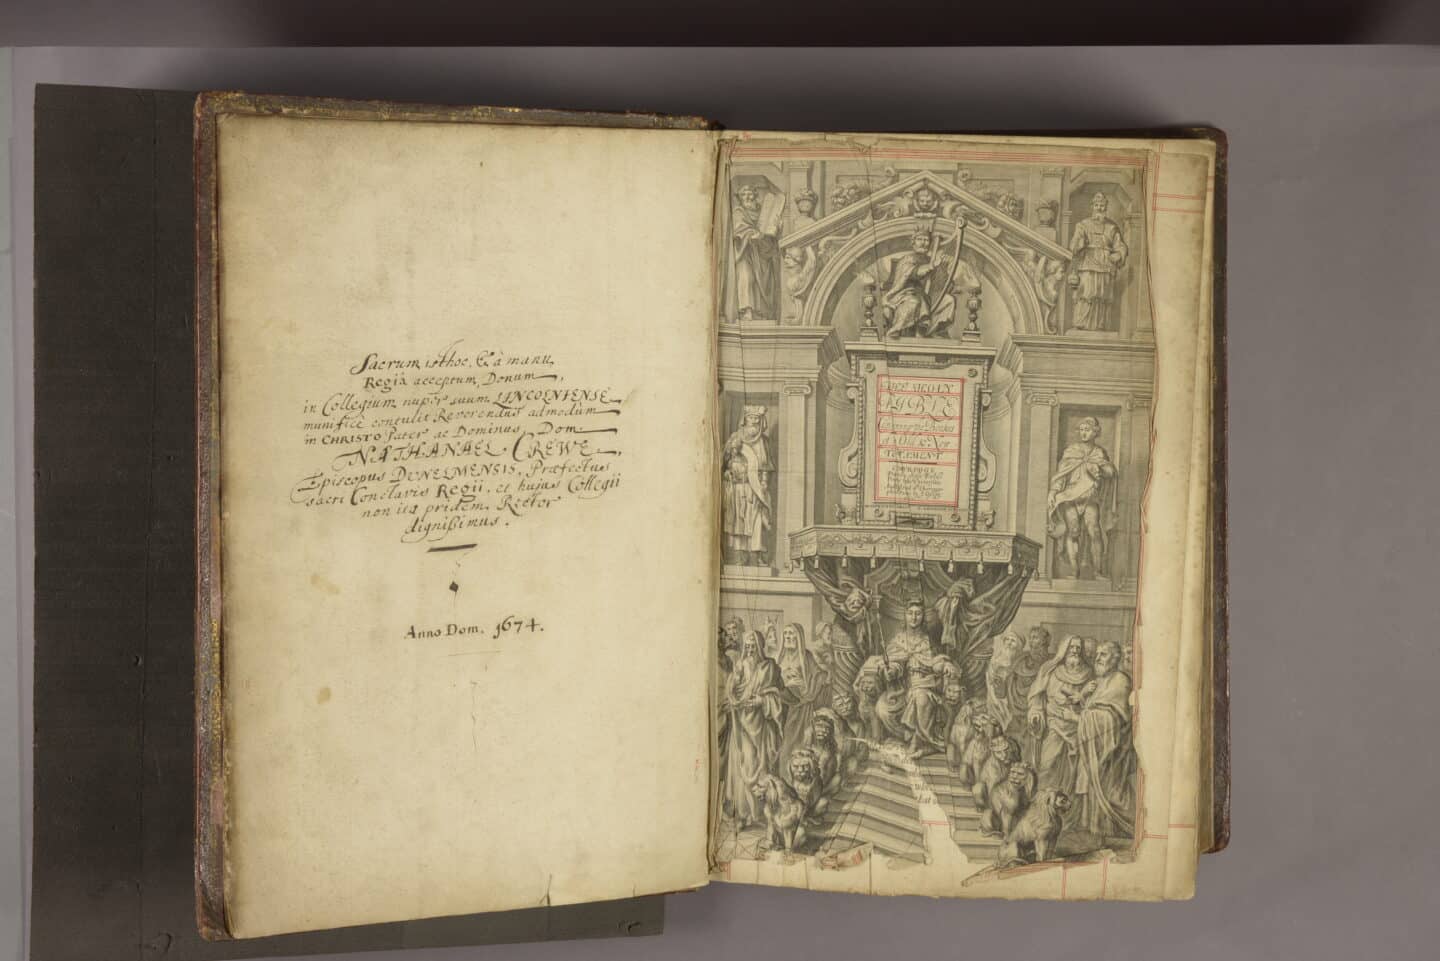 Sacrum isthoc, & à manu
Regiâ acceptum, Donum,
in Collegium nuper suum LINCOLNIENSE
munificè contulit Reverendus admodùm
in CHRISTO Pater ac Dominus, Dom.
NATHANAEL CREWE,
Episcopus DUNELMENSIS, Præfectus
sacri Conclavis Regii, et hujus Collegii
non ita pridem Rector
dignißimus.
Anno Dom. 1674.
THE HOLY
BIBLE
Containing the Bookes
of ye Old & New
TESTAMENT